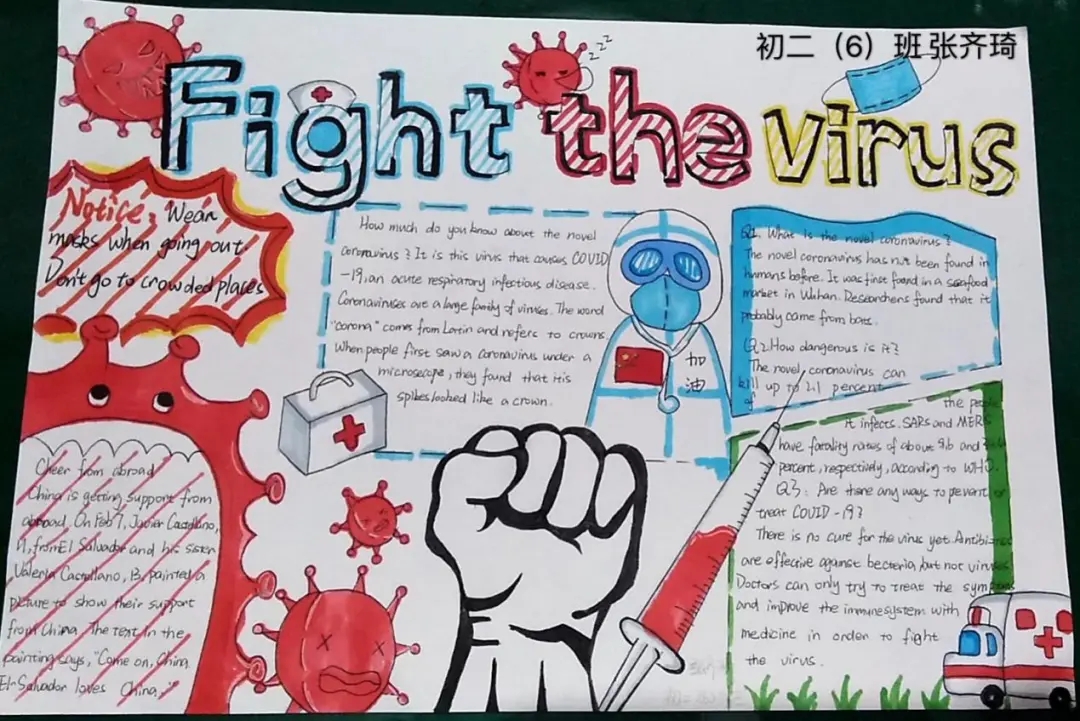 初二（6）班 张齐琦
Fight the virus
Notice: Wear
masks when going out
Don't go to crowded places
How much do you know about the novel
coronavirus? It is this virus that causes COVID
-19, an acute respiratory infectious disease.
Coronaviruses are a large family of viruses. The word
"corona" comes from Latin and refers to crowns.
When people first saw a coronavirus under a
microscope, they found that its
spikes looked like a crown.
加
油
Q1. What is the novel coronavirus?
The novel coronavirus has not been found in
humans before. It was first found in a seafood
market in Wuhan. Researchers found that it
probably came from bats.
Q2. How dangerous is it?
The novel coronavirus can
kill up to 2.1 percent
of the people
it infects. SARs and MERS
have fatality rates of about 9.6 and
percent, respectively, according to WHO.
Q3: Are there any ways to prevent or
treat COVID-19?
There is no cure for the virus yet. Antibiotics
are effective against bacteria, but not viruses
Doctors can only try to treat the symptoms
and improve the immune system with
medicine in order to fight
the virus.
Cheer from abroad
China is getting support from
abroad. On Feb 7, Javier Castellano,
11, from El Salvador and his sister
Valeria Castellano, 13, painted a
picture to show their support
from China. The text in the
painting says, "Come on, China
El-Salvador loves China."